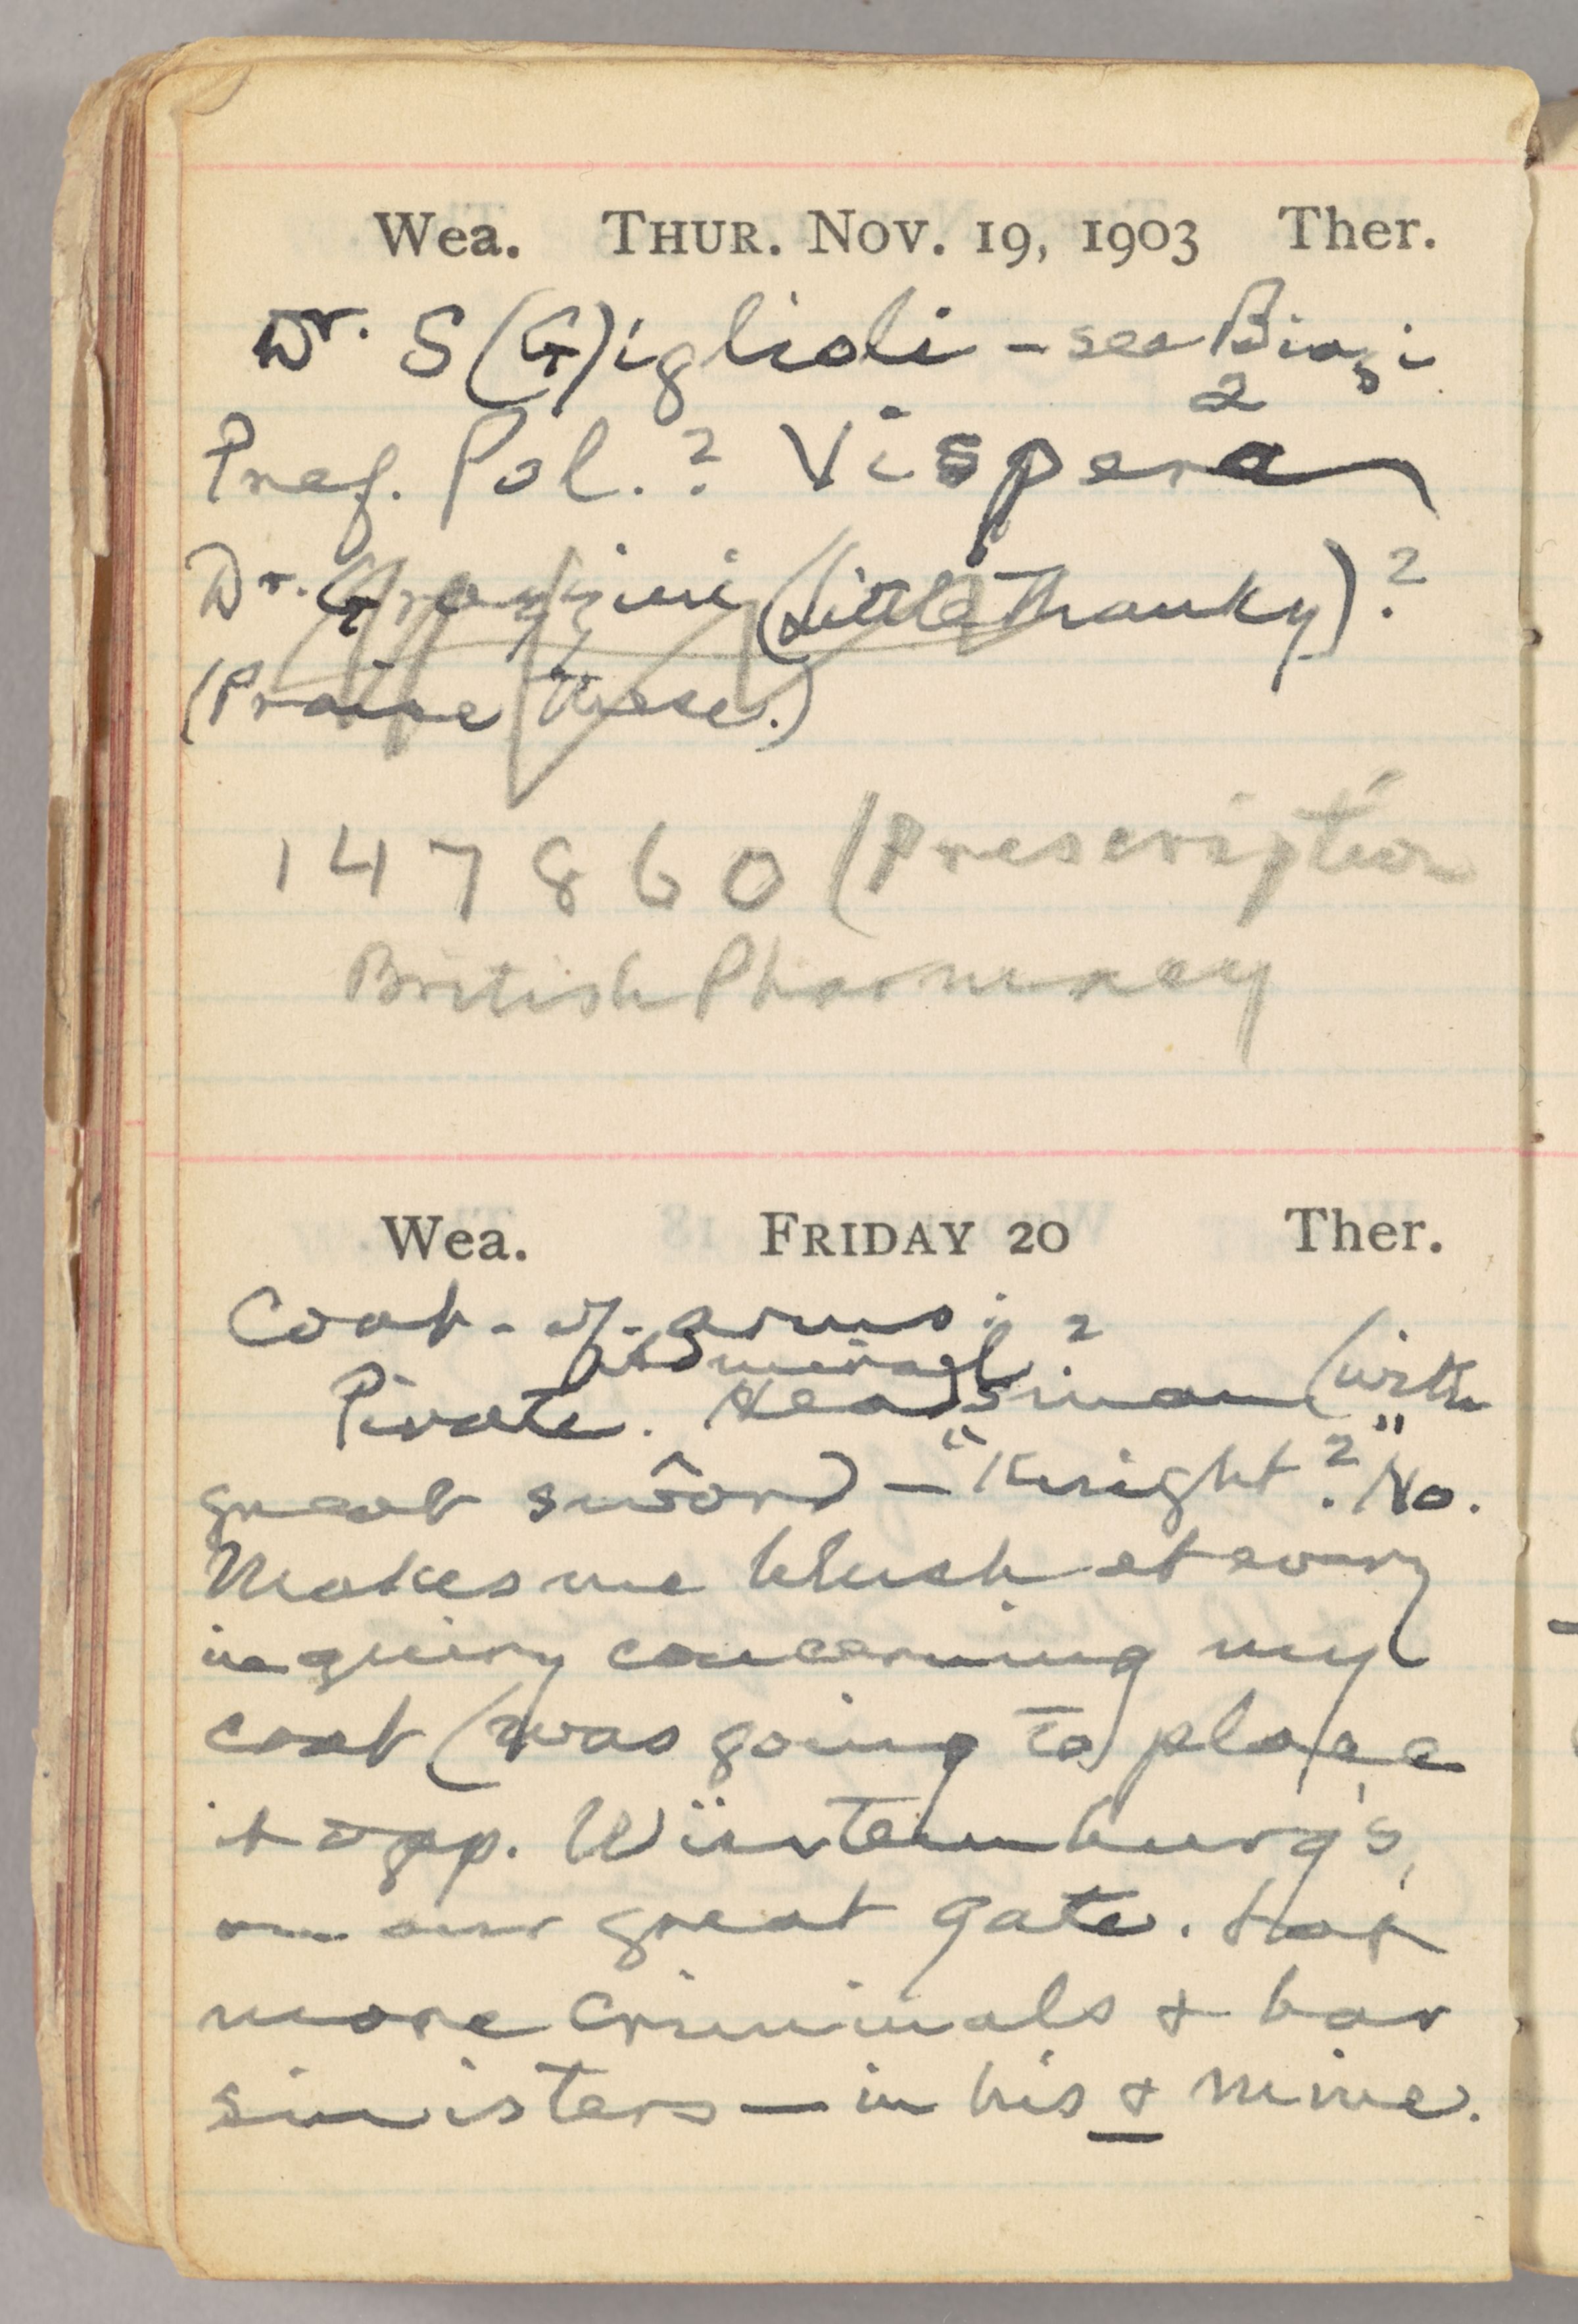 Wea. THUR. NOV. 19, 1903 Ther.
Dr. S(G)iglioli - see Biazi
Pref. Pol.? Vispera 2
Dr. Grazzini (Little Thanky)?
(Praise these.)
147860 (Prescription
British Pharmacy
Wea. FRIDAY 20 Ther.
Coat-of-arms:
Admiral?
Pirate. Headsman (with
great sword) — "Knight?" No.
Makes me blush at every
inquiry concerning my
coat (was going to place
it opp. Würtemburg's,
on our great gate. Lot
more criminals & bar
sinisters — in his & mine.